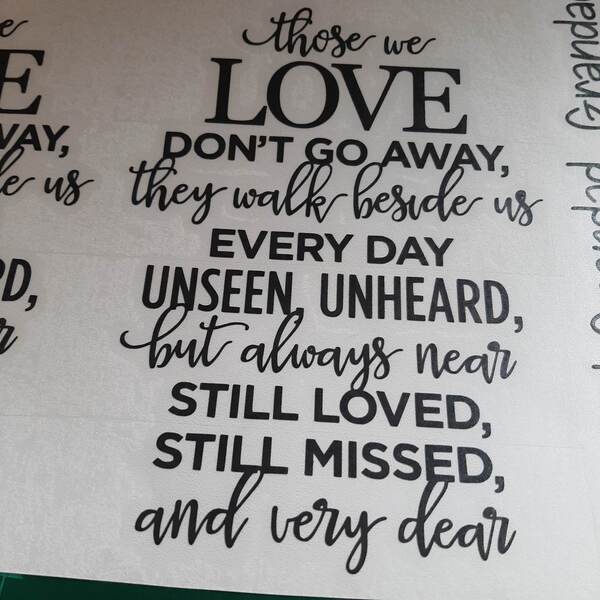 those we
LOVE
DON'T GO AWAY,
they walk beside us
EVERY DAY
UNSEEN, UNHEARD,
but always near
STILL LOVED,
STILL MISSED,
and very dear
E
WAY,
us